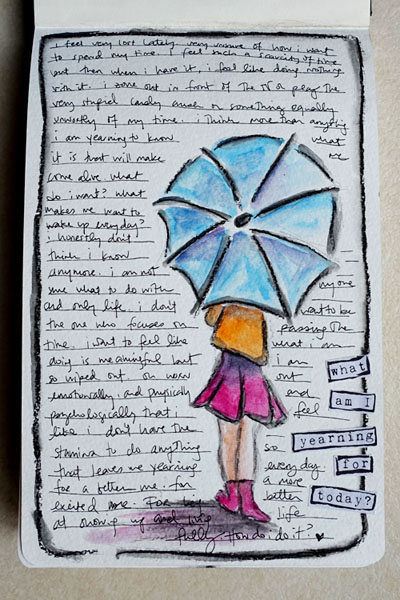 i feel very lost lately. very unsure of how i want
to spend my time. i feel such a scarcity of time
but then when i have it, i feel like doing nothing
with it. i zone out in front of the TV or play the
very stupid candy crush or something equally
unworthy of my time. i think more than anything
i am yearning to know what
it is that will make me
come alive. what
do i want? what
makes me want to
wake up everyday?
i honestly don't
think i know
anymore. i am not
sure what to do with my one
and only life. i don't want to be
the one who focuses on passing the
time. i want to feel like what i am
doing is meaningful but i am
so wiped out on work out
emotionally, and physically and
psychologically that i feel
like i don't have the
stamina to do anything so
that leaves me yearning every day.
for a better me. for a more
excited me. For better
at showing up and living life
fully. How do i do it?
what
am I
yearning
for
today?